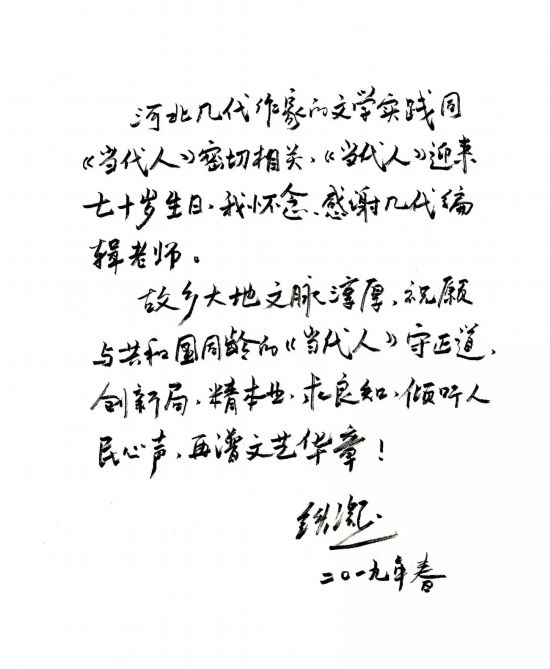 河北几代作家的文学实践同
《当代人》密切相关，《当代人》迎来
七十岁生日，我怀念、感谢几代编
辑老师。
故乡大地文脉淳厚，祝愿
与共和国同龄的《当代人》守正道，
创新局，精本业，求良知，倾听人
民心声，再谱文艺华章！
铁凝
二〇一九年春